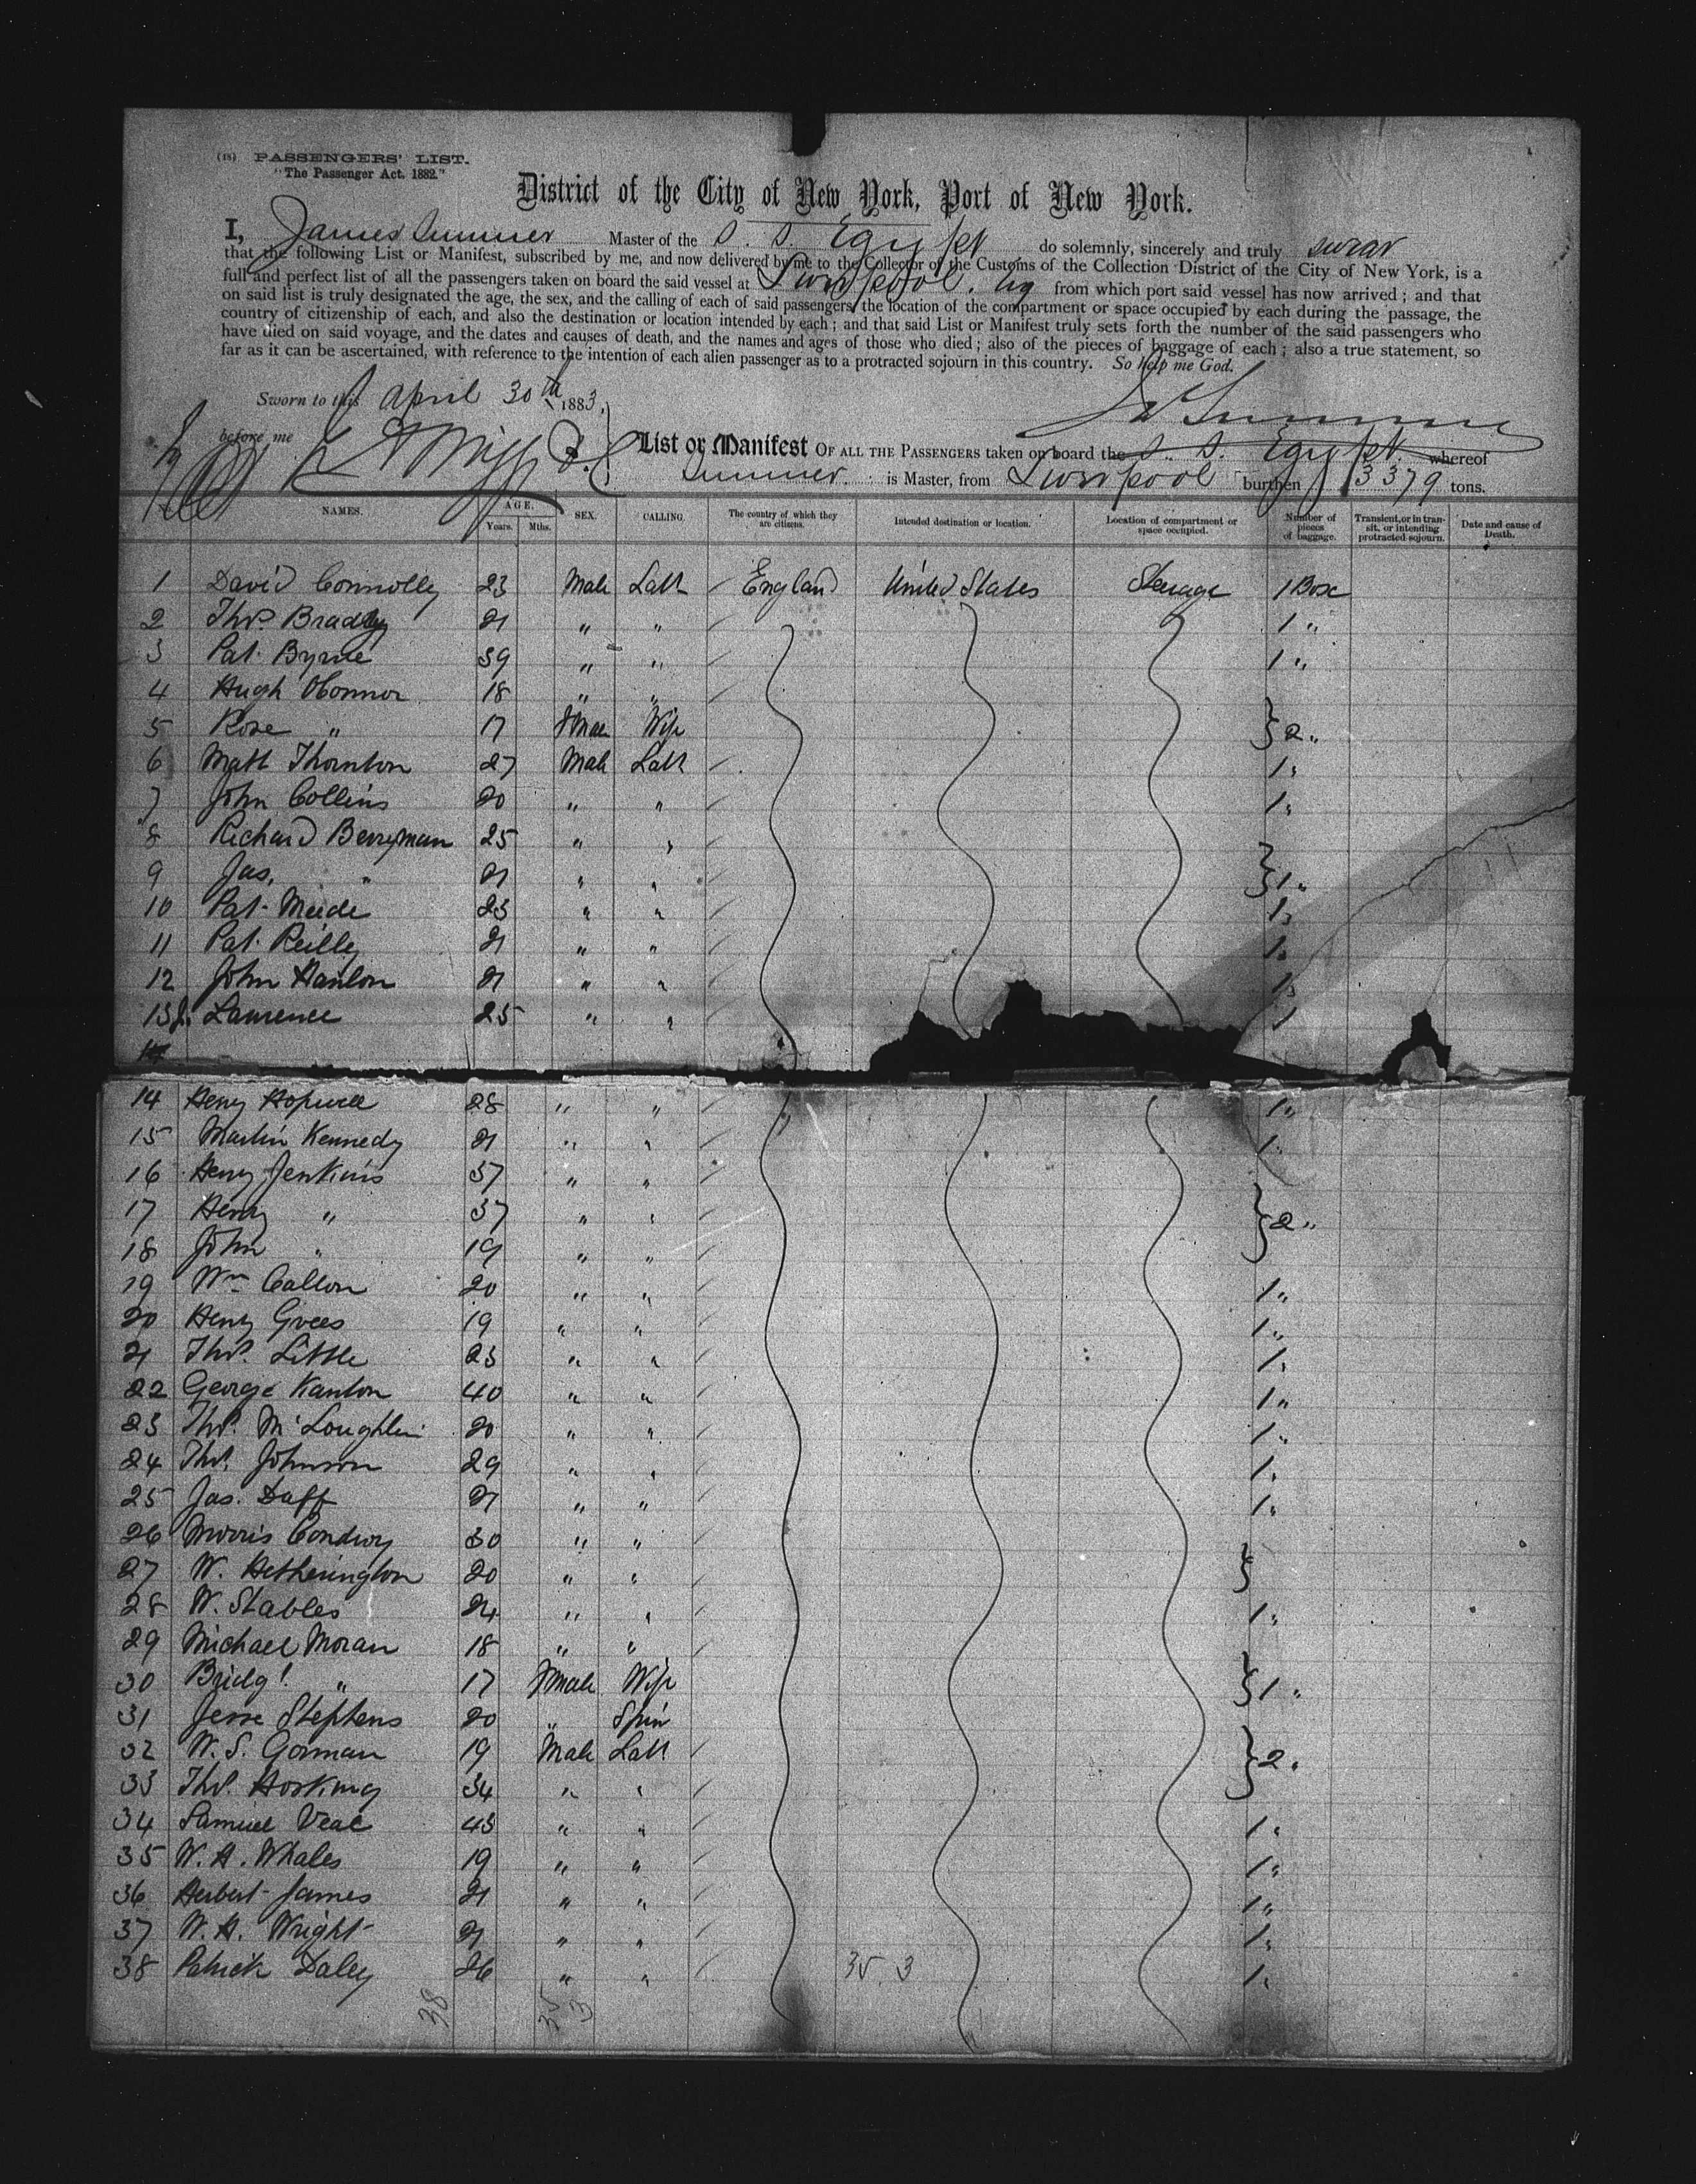 (18) PASSENGERS' LIST.
"The Passenger Act, 1882."
District of the City of New York, Port of New York.
I, James Sumner Master of the S. S. Egypt do solemnly, sincerely and truly swear
that the following List or Manifest, subscribed by me, and now delivered by me to the Collector of the Customs of the Collection District of the City of New York, is a
full and perfect list of all the passengers taken on board the said vessel at Liverpool. from which port said vessel has now arrived; and that
on said list is truly designated the age, the sex, and the calling of each of said passengers, the location of the compartment or space occupied by each during the passage, the
country of citizenship of each, and also the destination or location intended by each; and that said List or Manifest truly sets forth the number of the said passengers who
have died on said voyage, and the dates and causes of death, and the names and ages of those who died; also of the pieces of baggage of each; also a true statement, so
far as it can be ascertained, with reference to the intention of each alien passenger as to a protracted sojourn in this country. So Help me God.
Sworn to this April 30th 1883,
Sumner
before me
List or Manifest OF ALL THE PASSENGERS taken on board the S. S. Egypt whereof
Sumner. is Master, from Liverpool burthen 3379 tons.
NAMES. AGE. Years. Mths. SEX. CALLING. The country of which they are citizens. Intended destination or location. Location of compartment or space occupied. Number of pieces of baggage. Transient, or in transit, or intending protracted sojourn. Date and cause of Death.
1 David Connolly 23 Male Labr England United States Steerage 1 Box
2 Thos. Bradley 21 " " 1 "
3 Pat. Byrne 39 " " 1 "
4 Hugh OConnor 18 " "
5 Rose " 17 Fmale Wife } 2 "
6 Matt Thornton 27 Male Labr 1 "
7 John Collins 20 " " 1 "
8 Richard Berryman 25 " "
9 Jas. " 21 " " } 1 "
10 Pat. Meede 23 " " 1 "
11 Pat. Reilly 21 " " 1 "
12 John Hanlon 21 " " 1 "
13 J. Lawrence 25 " " 1
14 Henry Hopwell 28 " " 1 "
15 Martin Kennedy 21 " " 1 "
16 Henry Jenkins 57 " "
17 Henry " 37 " " } 2 "
18 John " 19 " "
19 Wm Callon 20 " " 1 "
20 Henry Grees 19 " " 1 "
21 Thos. Little 23 " " 1 "
22 George Kanton 40 " " 1 "
23 Thos. McLoughlin 20 " " 1 "
24 Thos. Johnson 29 " " 1 "
25 Jas. Duff 21 " " 1 "
26 Morris Condroy 30 " "
27 W. Hetherington 20 " " }
28 W. Stables 24 " " 1 "
29 Michael Moran 18 " "
30 Bridgt. " 17 Fmale Wife } 1 "
31 Jesse Stephens 20 " Spin
32 W. S. Gorman 19 Male Labr } 2 "
33 Thos. Hosking 34 " "
34 Samuel Veal 43 " " 1 "
35 W. H. Whales 19 " " 1 "
36 Herbert James 21 " " 1 "
37 W. H. Wright 21 " " 1 "
38 Patrick Daley 26 " " 35. 3 1 "
38 35 3